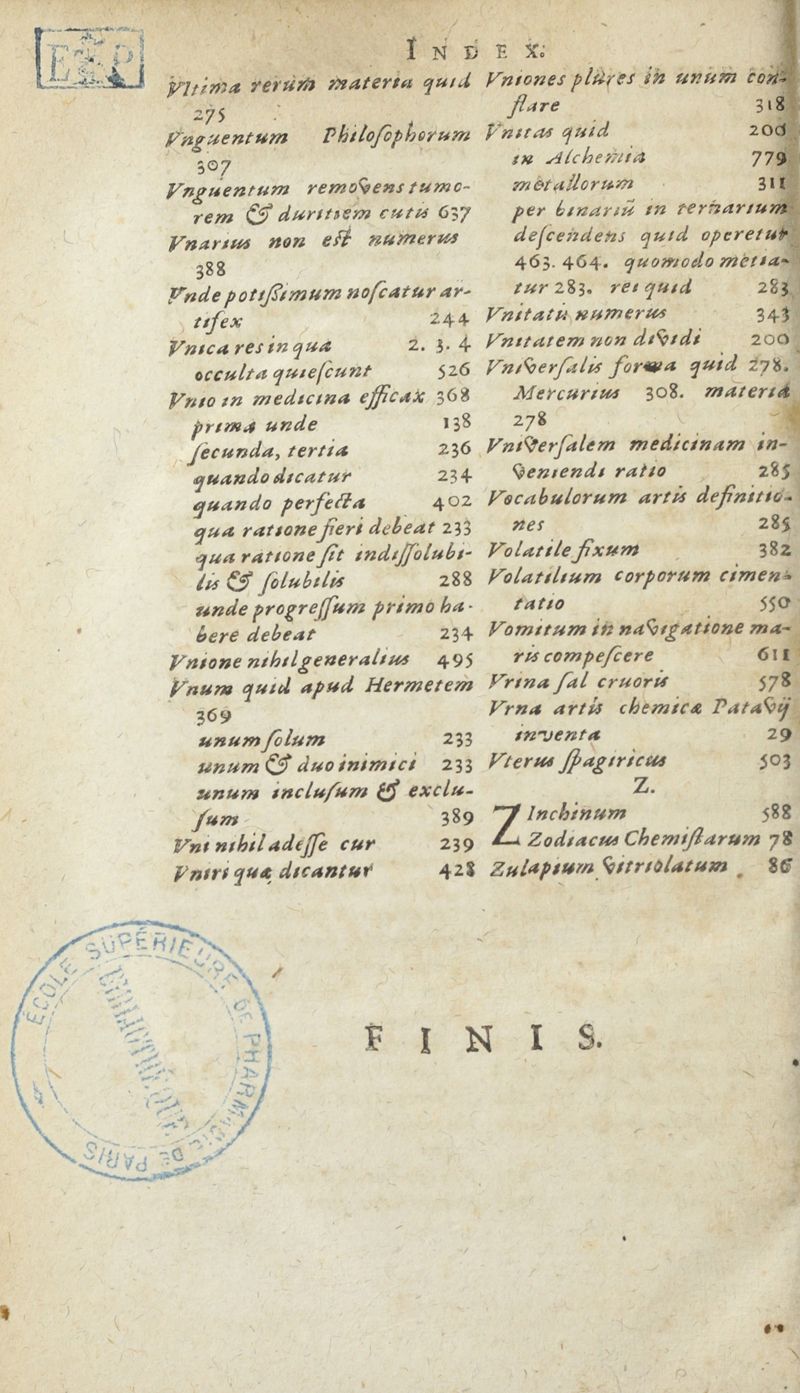 INDEX.
Vltima rerum materia quid
275
Vnguentum Philosophorum
307
Vnguentum removens tumo-
rem & duritiem cutis 637
Vnarius non est numerus
388
Vnde potissimum noscatur ar-
tifex 244
Vnica res in qua 2. 3. 4
occulta quiescunt 526
Vnio in medicina efficax 368
prima unde 138
secunda, tertia 236
quando dicatur 234
quando perfecta 402
qua ratione fieri debeat 233
qua ratione fit indissolubi-
lis & solubilis 288
unde progressum primo ha-
bere debeat 234
Vnione nihil generalius 495
Vnum quid apud Hermetem
369
unum solum 233
unum & duo inimici 233
unum inclusum & exclu-
sum 389
Vni nihil adesse cur 239
Vniri quæ dicantur 428
Vniones plures in unum con-
flare 318
Vnitas quid 200
in Alchemia 779
metallorum 311
per binariū in ternarium
descendens quid operetur
463. 464. quomodo metia-
tur 283. rei quid 283
Vnitatū numerus 343
Vnitatem non dividi 200
Vniversalis forma quid 278.
Mercurius 308. materia
278
Vniversalem medicinam in-
veniendi ratio 285
Vocabulorum artis definitio-
nes 285
Volatile fixum 382
Volatilium corporum cimen-
tatio 550
Vomitum in navigatione ma-
ris compescere 611
Vrina sal cruoris 578
Vrna artis chemicæ Patavij
inventa 29
Vterus spagiricus 503
Z.
ZInchinum 588
Zodiacus Chemistarum 78
Zulapium vitriolatum 86
FINIS.
ECOLE SUPÉRIEURE DE PHARMACIE
DE PARIS